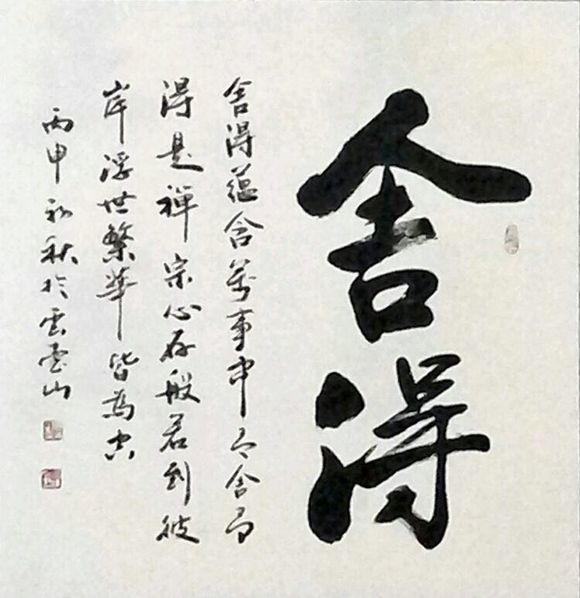 舍得
舍得蕴含萬事中舍
得是禅宗心存般若到彼
岸浮世繁華皆為空
丙申初秋於雲山